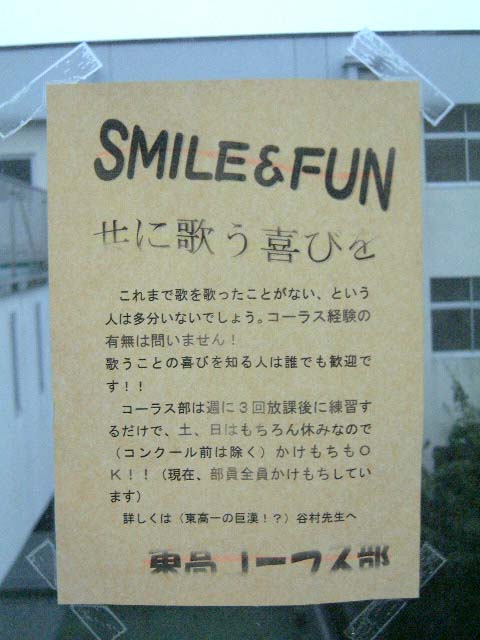 SMILE&FUN
共に歌う喜びを
これまで歌を歌ったことがない、という
人は多分いないでしょう。コーラス経験の
有無は問いません！
歌うことの喜びを知る人は誰でも歓迎で
す！！
コーラス部は週に３回放課後に練習す
るだけで、土、日はもちろん休みなので
（コンクール前は除く）かけもちもＯ
Ｋ！！（現在、部員全員かけもちしてい
ます）
詳しくは（東高一の巨漢！？）谷村先生へ
東高コーラス部